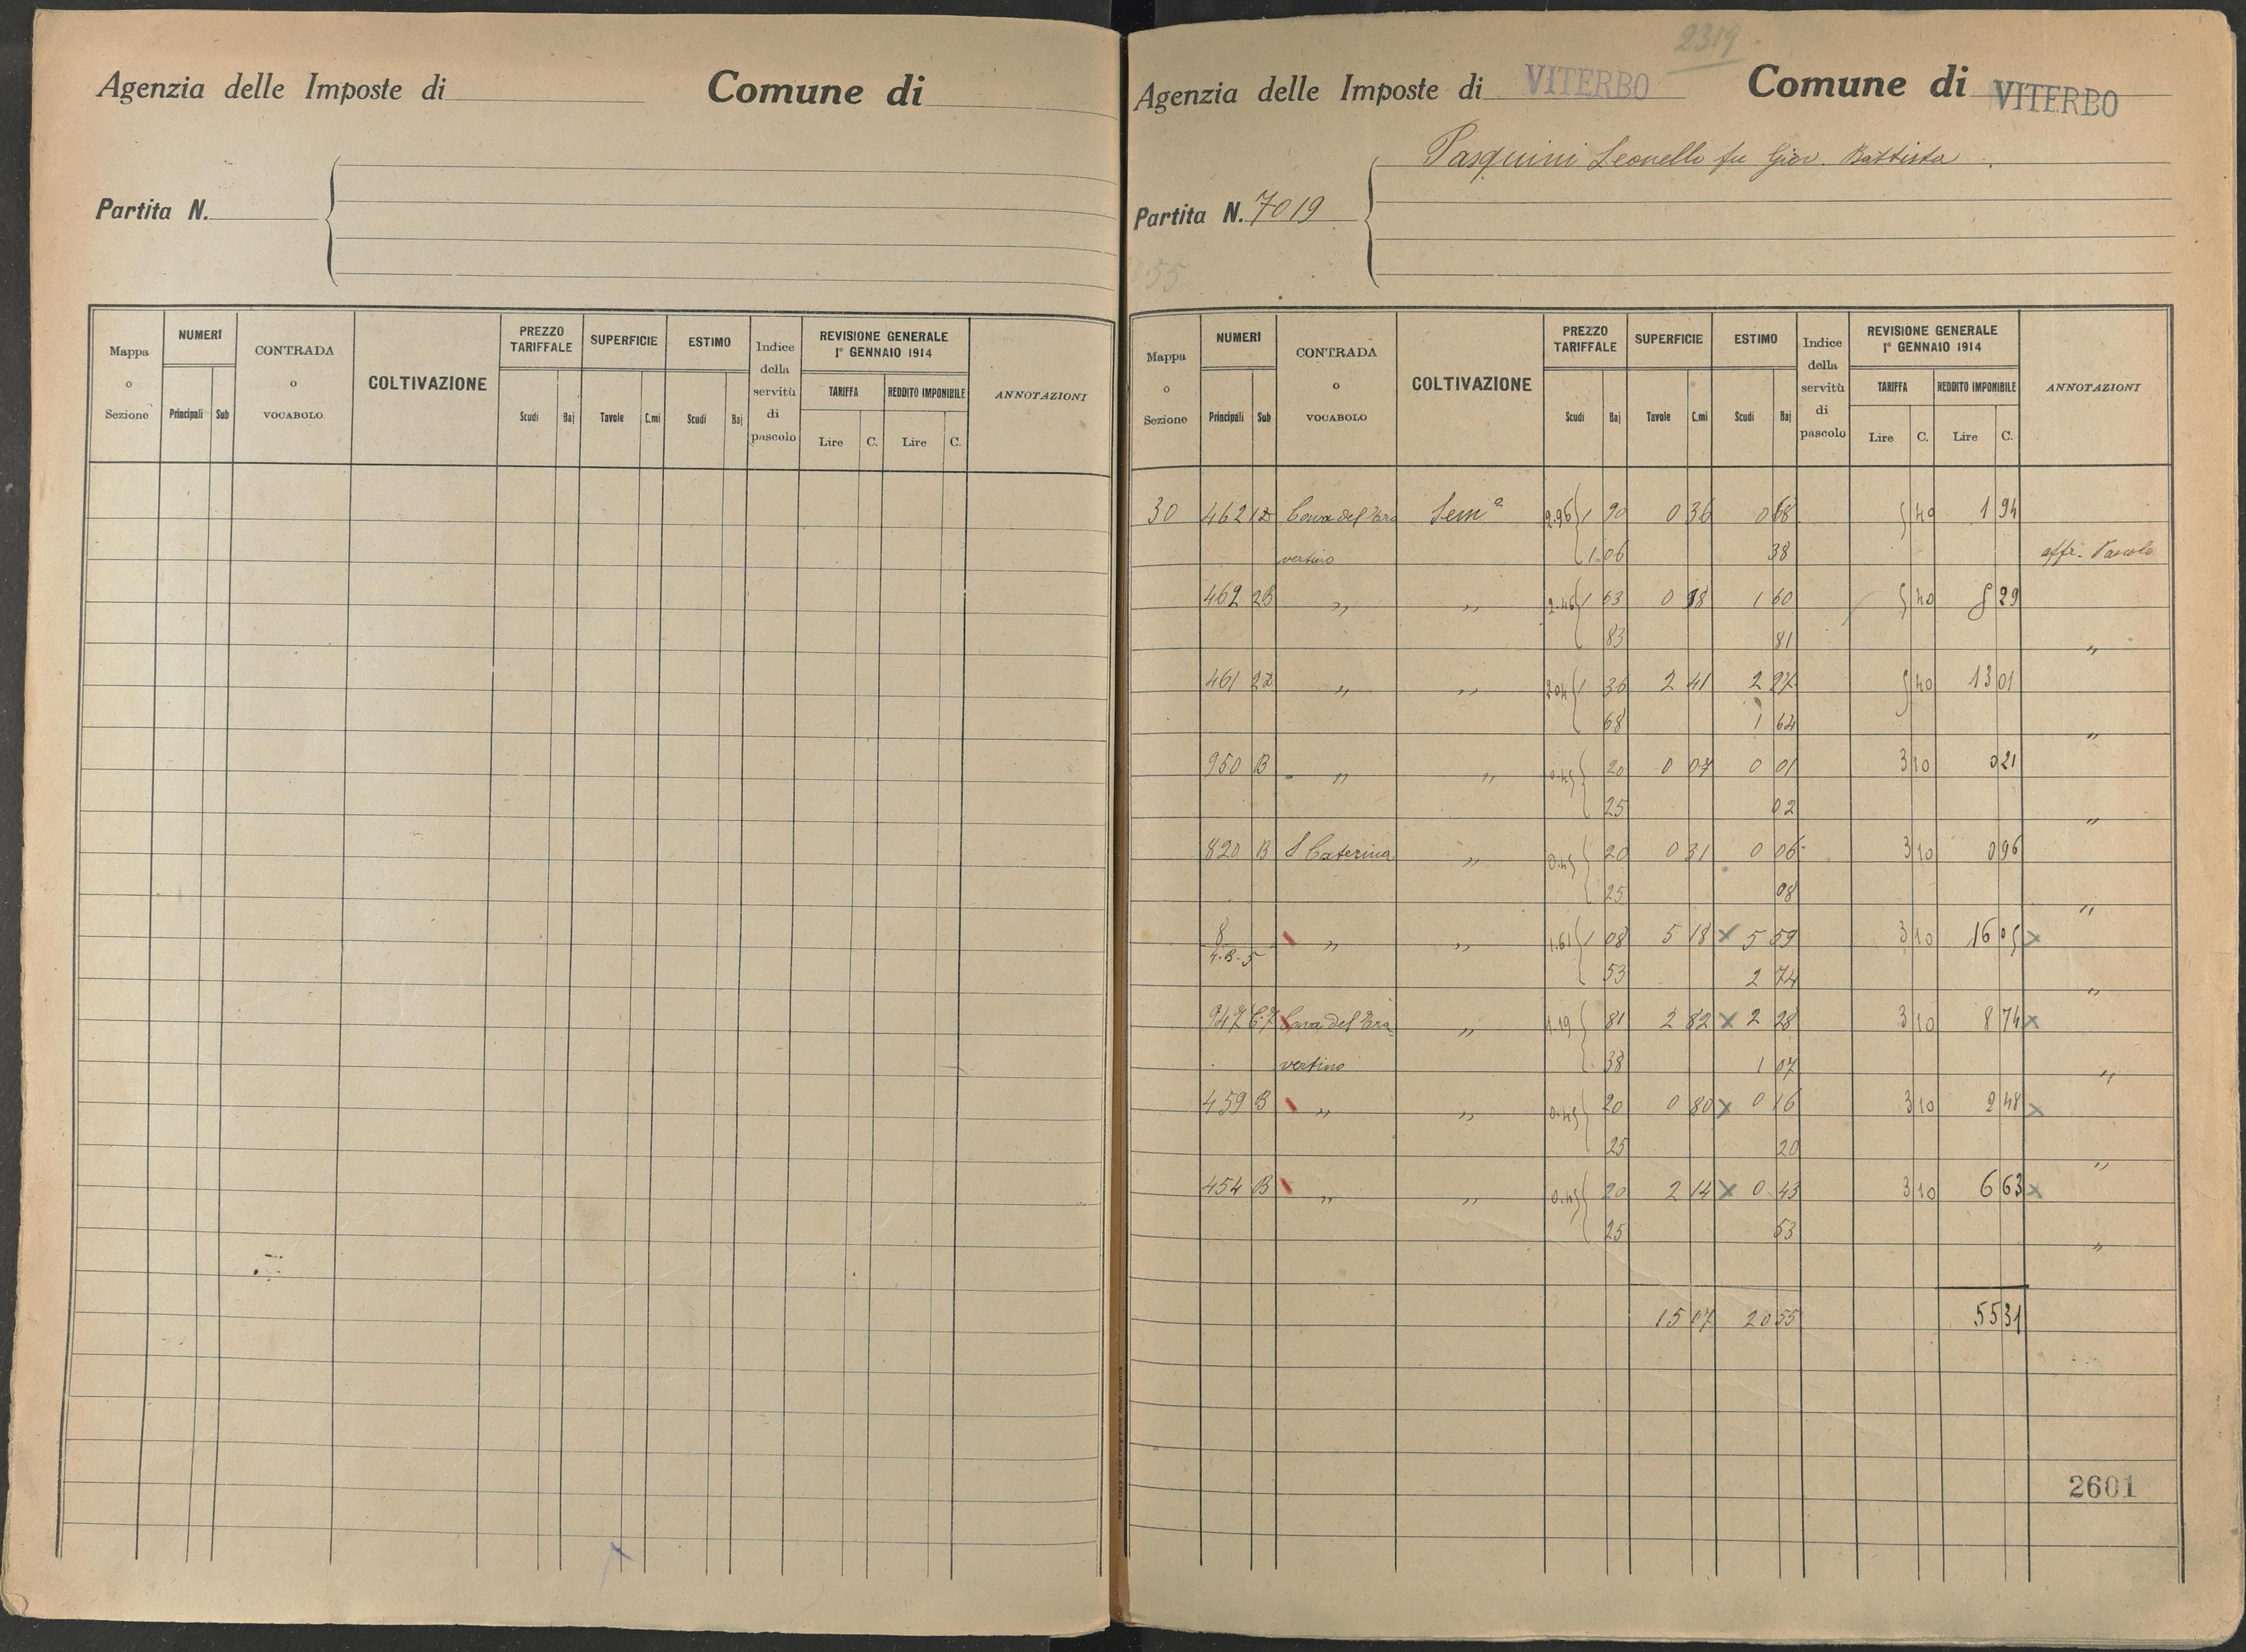 Agenzia delle Imposte di Comune di
Partita N.
Mappa o Sezione
NUMERI
Principali Sub
CONTRADA o VOCABOLO
COLTIVAZIONE
PREZZO TARIFFALE
Scudi Baj
SUPERFICIE
Tavole C.mi
ESTIMO
Scudi Baj
Indice della servitù di pascolo
REVISIONE GENERALE
1° GENNAIO 1914
TARIFFA REDDITO IMPONIBILE
Lire C. Lire C.
ANNOTAZIONI
2319
Agenzia delle Imposte di VITERBO Comune di VITERBO
Pasquini Leonello fu Giov. Battista
Partita N. 7019
55
Mappa o Sezione
NUMERI
Principali Sub
CONTRADA o VOCABOLO
COLTIVAZIONE
PREZZO TARIFFALE
Scudi Baj
SUPERFICIE
Tavole C.mi
ESTIMO
Scudi Baj
Indice della servitù di pascolo
REVISIONE GENERALE
1° GENNAIO 1914
TARIFFA REDDITO IMPONIBILE
Lire C. Lire C.
ANNOTAZIONI
30 462 Cava del Tra Sem a 2.96 1 90 0 36 0 68 5 40 1 94
vertino 1.06 38 affr. Pascolo
462 2B " " 2.46 1 63 0 98 1 60 5 40 5 29
83 81 "
461 " " 2.04 1 36 2 41 5 40 13 01
68 1 64 "
950 B " " 0.45 20 0 07 0 01 3 10 0 21
25 02 "
820 B S Caterina " 0.45 20 0 31 0 06 3 10 0 96
25 08 "
8 " " 1.61 1 08 5 18 x 5 59 3 10 16 05 x
4.B.5 53 2 74 "
947 Cava del Tra " 1.19 81 2 82 x 2 28 3 10 8 74 x
vertino 38 1 07 "
459 B " " 0.45 20 0 80 x 0 16 3 10 2 48 x
25 20 "
454 B " " 0.45 20 2 14 x 0 43 3 10 6 63 x
25 53 "
15 07 20 55 55 31
2601